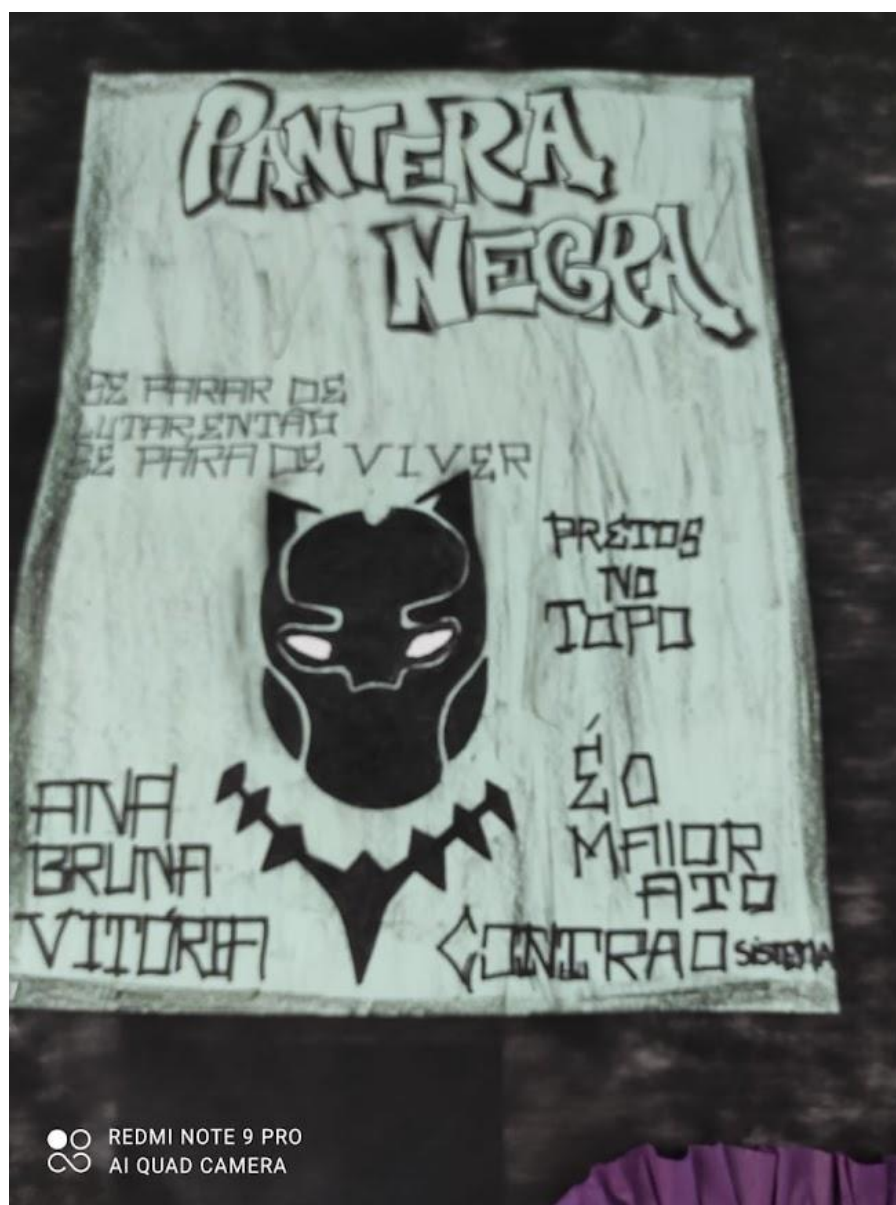 PANTERA
NEGRA
SE PARAR DE
LUTAR ENTÃO
SE PARA DE VIVER
PRETOS
NO
TOPO
É O
MAIOR
ATO
CONTRA O SISTEMA
ANA
BRUNA
VITÓRIA
REDMI NOTE 9 PRO
AI QUAD CAMERA